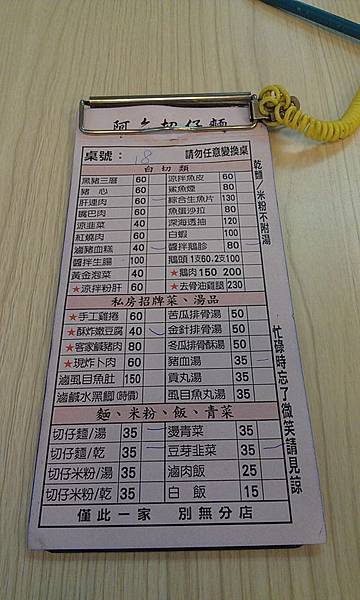 阿乞切仔麵
桌號：18 請勿任意變換桌
白切類
黑豬三層 60 涼拌魚皮 60
豬心 60 鯊魚煙 80
肝連肉 60 綜合生魚片 130
嘴巴肉 60 魚蛋沙拉 80
涼韭菜 40 深海透抽 120
紅燒肉 60 白蝦 100
滷豬血糕 40 醬拌鵝胗 80
醬拌生腸 100 鵝頭1支60.2支100
黃金泡菜 40 ★鵝肉 150 200
★涼拌粉肝 60 ★去骨油雞腿 230
私房招牌菜、湯品
★手工雞捲 60 苦瓜排骨湯 50
★酥炸嫩豆腐 40 金針排骨湯 50
★客家鹹豬肉 80 冬瓜排骨酥湯 50
★現炸卜肉 60 豬血湯 35
滷虱目魚肚 150 貢丸湯 35
滷鹹水黑鯽(時價) 虱目魚丸湯 35
麵、米粉、飯、青菜
切仔麵/湯 35 燙青菜 35
切仔麵/乾 35 豆芽韭菜 35
切仔米粉/湯 35 滷肉飯 25
切仔米粉/乾 35 白飯 15
僅此一家 別無分店
乾麵/米粉不附湯
忙碌時忘了微笑請見諒